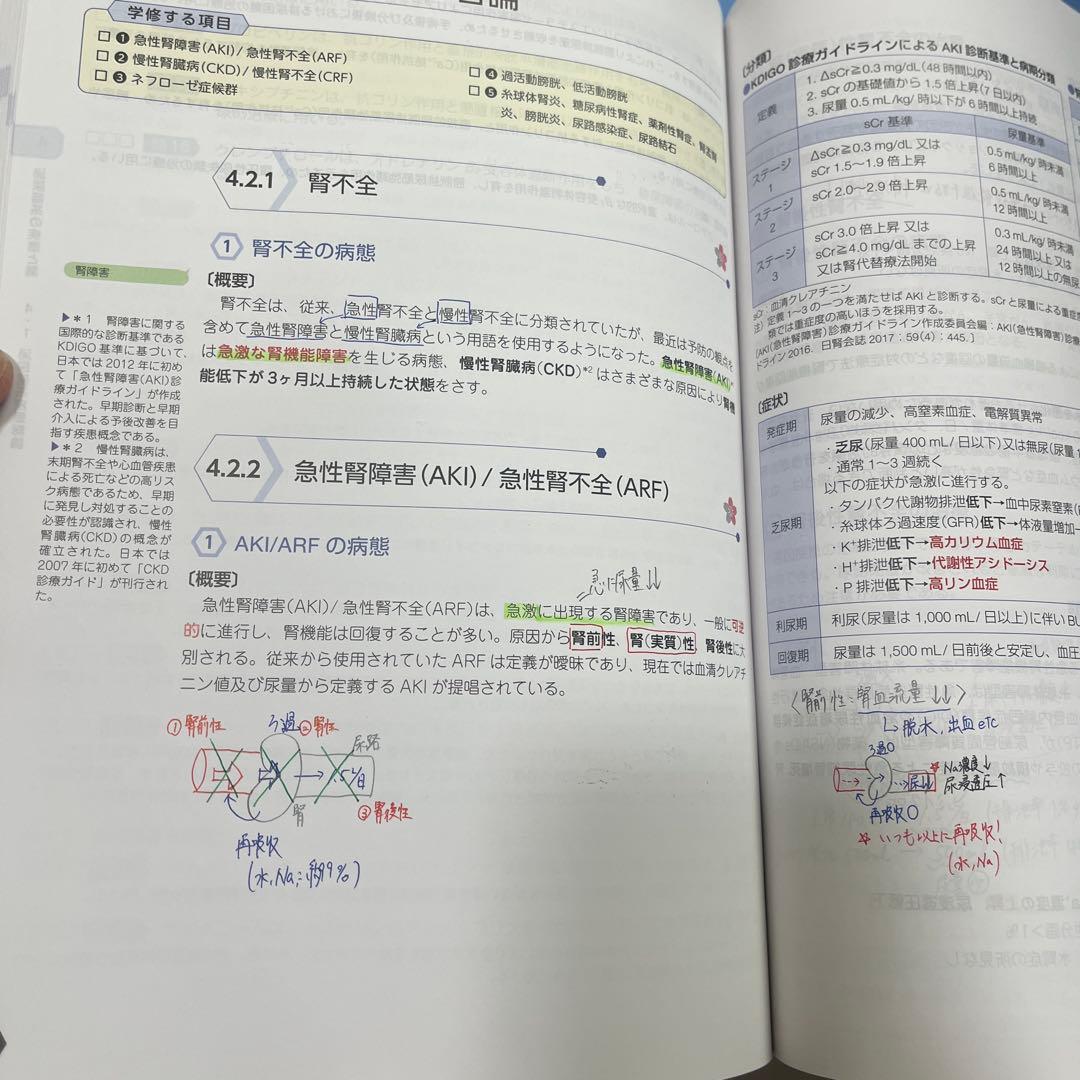 学修する項目
□ ❶ 急性腎障害(AKI)/ 急性腎不全(ARF)
□ ❷ 慢性腎臓病(CKD)/ 慢性腎不全(CRF)
□ ❸ ネフローゼ症候群
□ ❹ 過活動膀胱、低活動膀胱
□ ❺ 糸球体腎炎、糖尿病性腎症、薬剤性腎症、腎盂腎
炎、膀胱炎、尿路感染症、尿路結石
4.2.1 腎不全
1 腎不全の病態
〔概要〕
腎不全は、従来、急性腎不全と慢性腎不全に分類されていたが、最近は予防の観点を
含めて急性腎障害と慢性腎臓病という用語を使用するようになった。急性腎障害(AKI)*1
は急激な腎機能障害を生じる病態、慢性腎臓病(CKD)*2 はさまざまな原因により腎機
能低下が 3 ヶ月以上持続した状態をさす。
腎障害
▶*1 腎障害に関する
国際的な診断基準である
KDIGO 基準に基づいて、
日本では 2012 年に初め
て「急性腎障害(AKI)診
療ガイドライン」が作成
された。早期診断と早期
介入による予後改善を目
指す疾患概念である。
▶*2 慢性腎臓病は、
末期腎不全や心血管疾患
による死亡などの高リス
ク病態であるため、早期
に発見し対処することの
必要性が認識され、慢性
腎臓病(CKD)の概念が
確立された。日本では
2007 年に初めて「CKD
診療ガイド」が刊行され
た。
4.2.2 急性腎障害(AKI)/ 急性腎不全(ARF)
1 AKI/ARF の病態
〔概要〕
急に尿量↓↓
急性腎障害(AKI)/ 急性腎不全(ARF)は、急激に出現する腎障害であり、一般に可逆
的に進行し、腎機能は回復することが多い。原因から腎前性、腎(実質)性、腎後性に大
別される。従来から使用されていた ARF は定義が曖昧であり、現在では血清クレアチ
ニン値及び尿量から定義する AKI が提唱されている。
①腎前性
ろ過 ②腎性
尿路
1.5L/日
腎
③腎後性
再吸収
(水,Na:約99%)
〔分類〕
●KDIGO 診療ガイドラインによる AKI 診断基準と病期分類
定義
1. ΔsCr≧0.3 mg/dL(48 時間以内)
2. sCr の基礎値から 1.5 倍上昇(7 日以内)
3. 尿量 0.5 mL/kg/ 時以下が 6 時間以上持続
sCr 基準 尿量基準
ステージ 1
ΔsCr≧0.3 mg/dL 又は
sCr 1.5～1.9 倍上昇
0.5 mL/kg/ 時未満
6 時間以上
ステージ 2
sCr 2.0～2.9 倍上昇
0.5 mL/kg/ 時未満
12 時間以上
ステージ 3
sCr 3.0 倍上昇 又は
sCr≧4.0 mg/dL までの上昇
又は腎代替療法開始
0.3 mL/kg/ 時未満
24 時間以上 又は
12 時間以上の無尿
sCr:血清クレアチニン
注)定義 1～3 の一つを満たせば AKI と診断する。sCr と尿量による重症度
類では重症度の高いほうを採用する。
[AKI(急性腎障害)診療ガイドライン作成委員会編:AKI(急性腎障害)診療
ドライン 2016. 日腎会誌 2017:59(4):445.]
〔症状〕
発症期 尿量の減少、高窒素血症、電解質異常
乏尿期
・乏尿(尿量 400 mL/ 日以下)又は無尿(尿量
・通常 1～3 週続く
以下の症状が急激に進行する。
・タンパク代謝物排泄低下→血中尿素窒素
・糸球体ろ過速度(GFR)低下→体液量増加
・K⁺排泄低下→高カリウム血症
・H⁺排泄低下→代謝性アシドーシス
・P 排泄低下→高リン血症
利尿期 利尿(尿量は 1,000 mL/ 日以上)に伴い BU
回復期 尿量は 1,500 mL/ 日前後と安定し、血圧
〈腎前性:腎血流量↓↓〉
↳ 脱水,出血etc
ろ過〇
尿↓↓
☆ Na濃度↓
尿浸透圧↑
再吸収〇
☆ いつも以上に再吸収!
(水,Na)